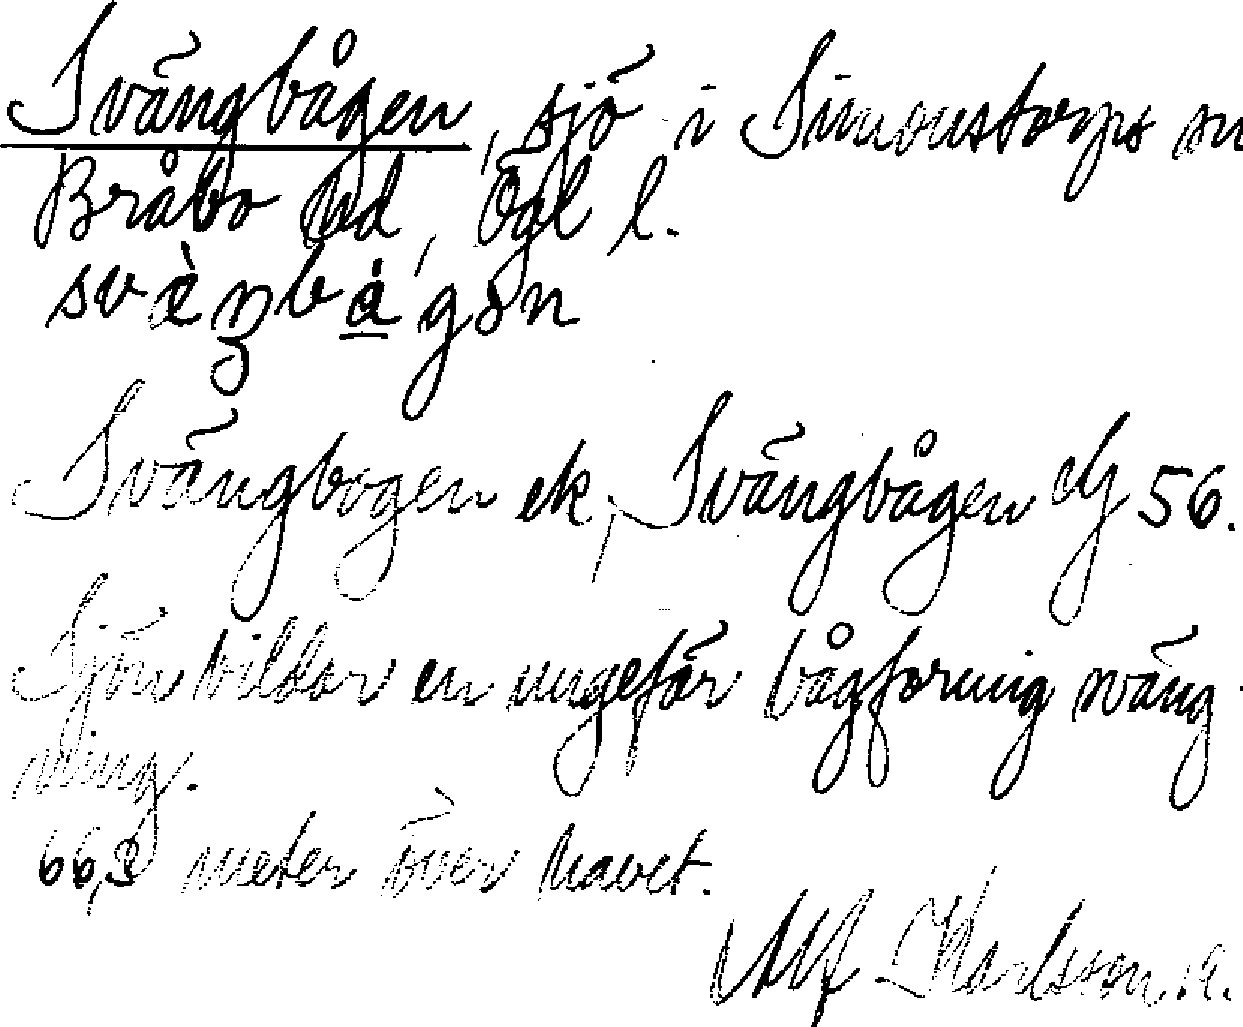 Svängbågen, sjö i Simonstorps sn
Bråbo hd, Ögl l.
svä̀ŋbå̀gən
Svängbogen ek, Svängbågen 56.
Sjön bildar en ungefär bågformig sväng-
ning.
66,3 meter över havet.
Alf Karlsson